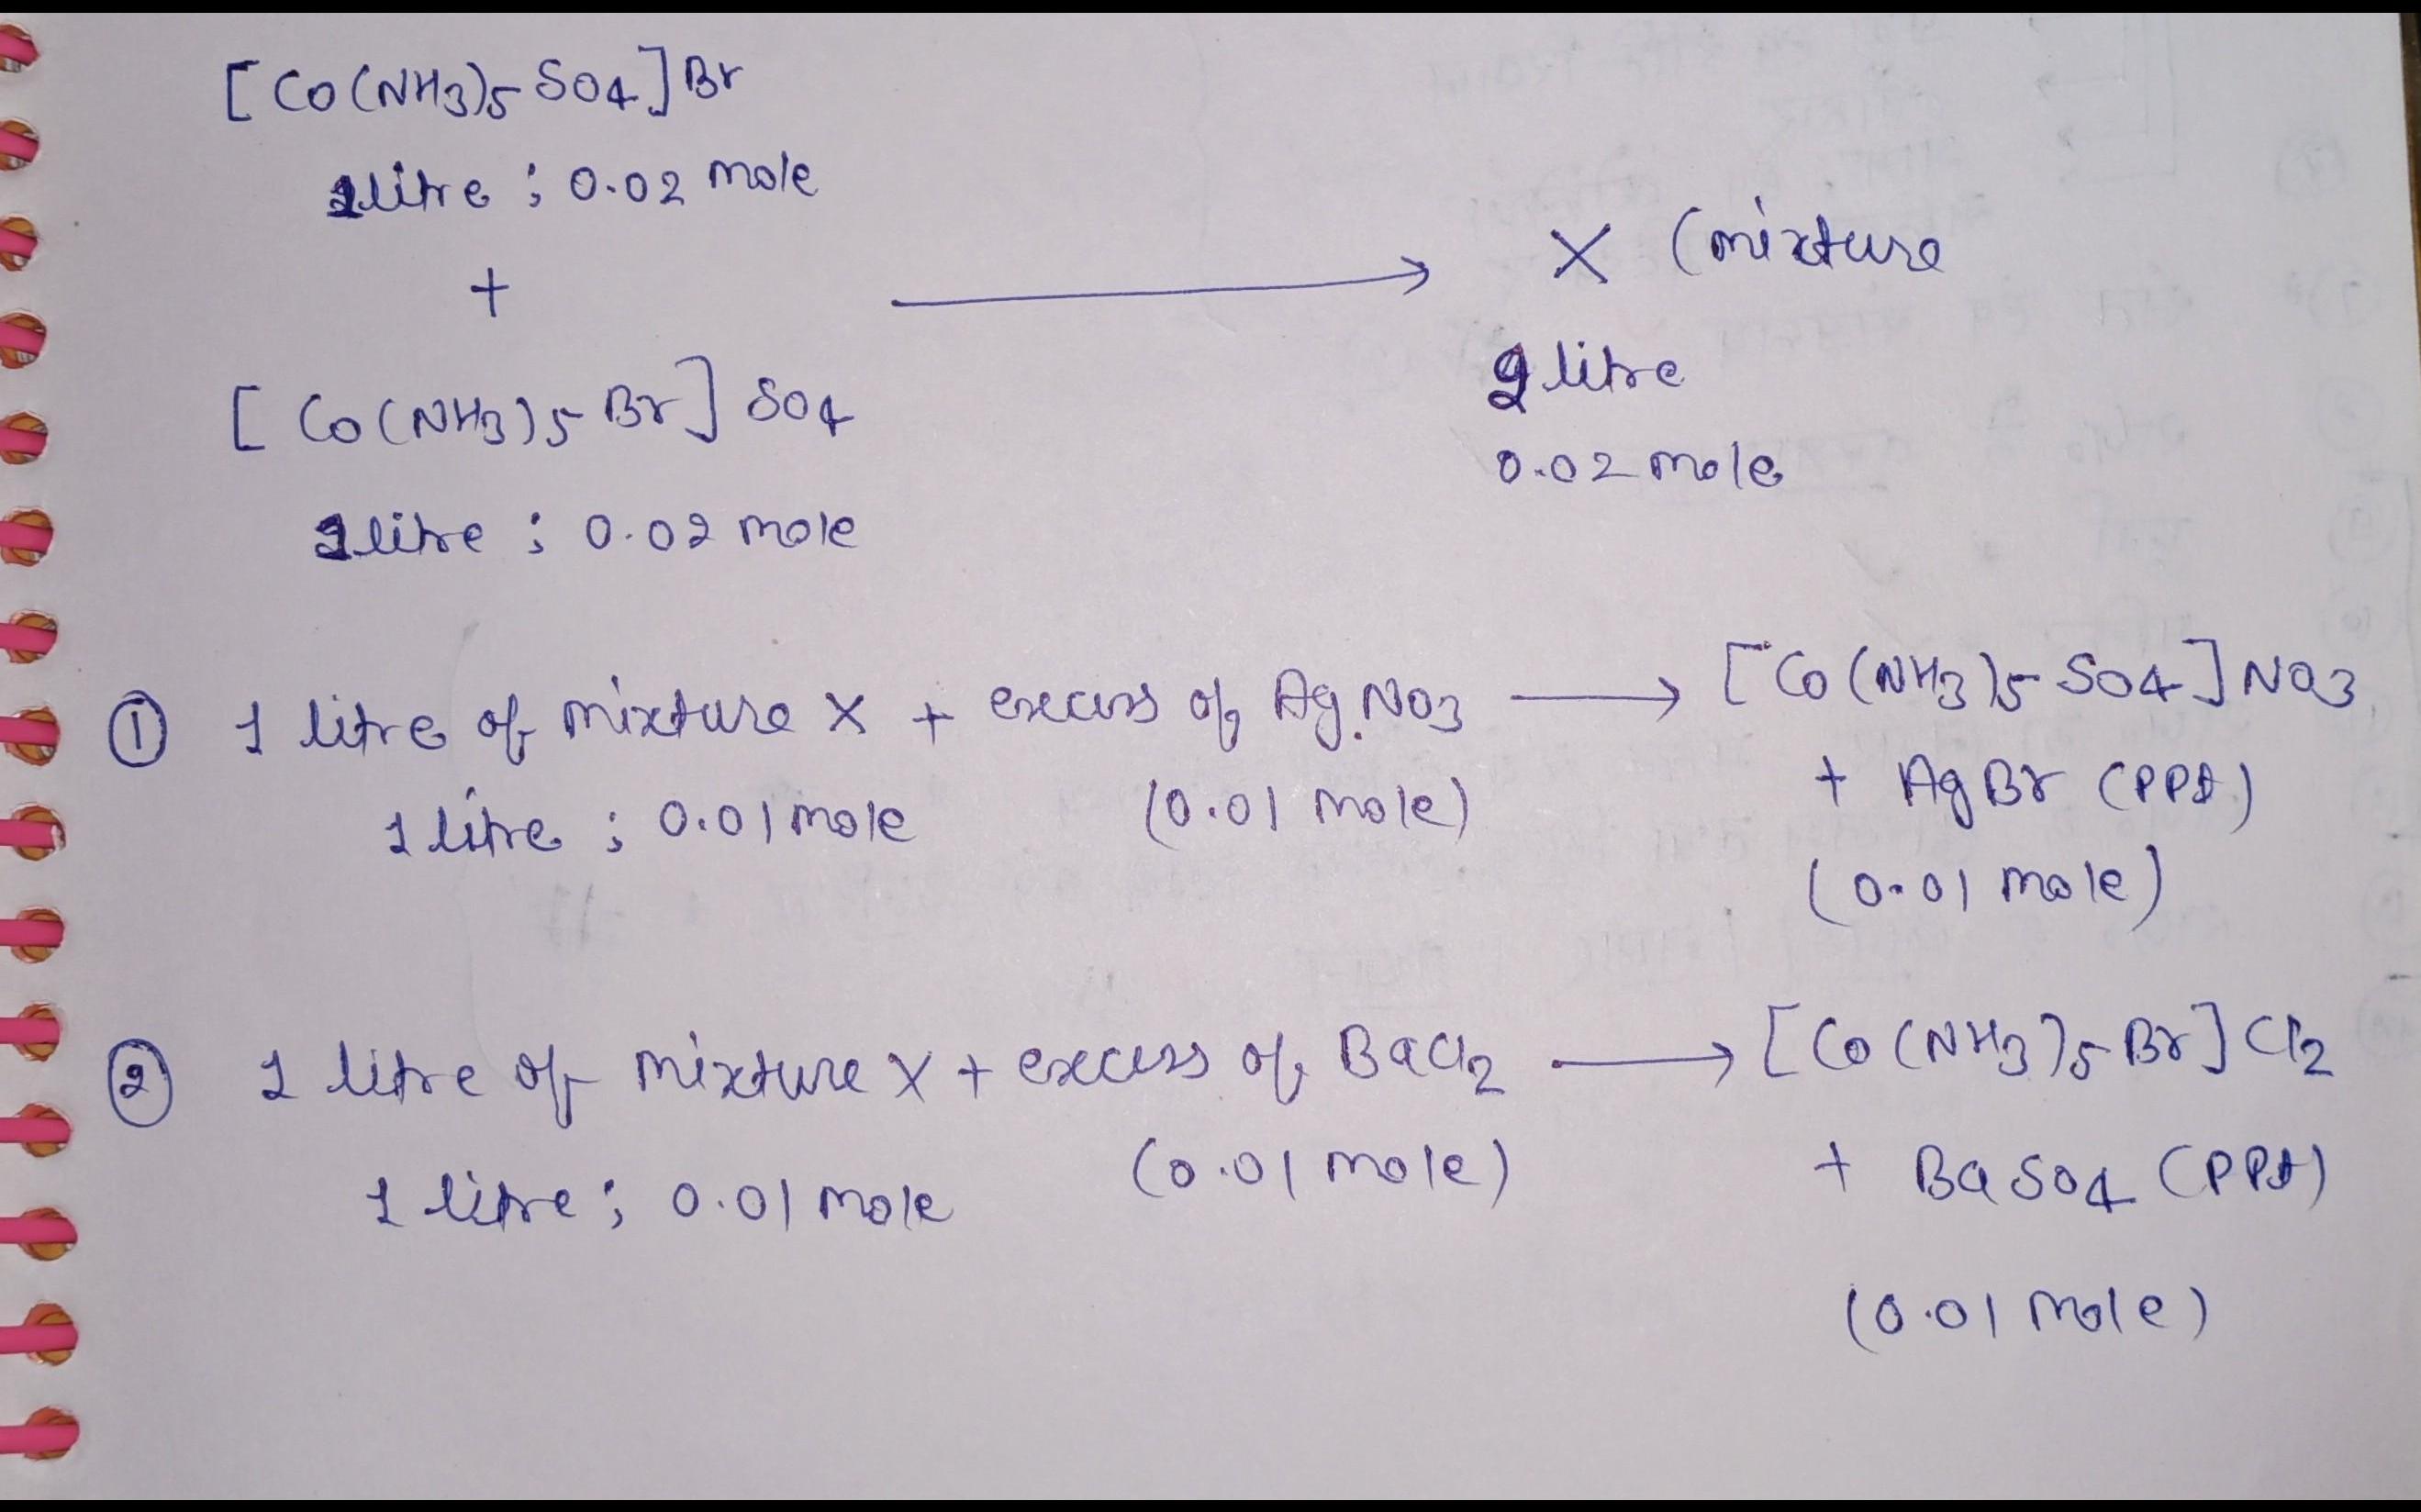 [Co(NH3)5 SO4]Br
1litre ; 0.02 mole
+
X (mixture
[Co(NH3)5 Br] SO4
2 litre
0.02 mole
1litre ; 0.02 mole
① 1 litre of mixture X + excess of AgNO3 ⟶ [Co(NH3)5 SO4] NO3
+ AgBr (PPt)
1 litre ; 0.01 mole (0.01 mole)
(0.01 mole)
② 1 litre of mixture X + excess of BaCl2 ⟶ [Co(NH3)5 Br] Cl2
+ BaSO4 (PPt)
1 litre ; 0.01 mole (0.01 mole)
(0.01 mole)